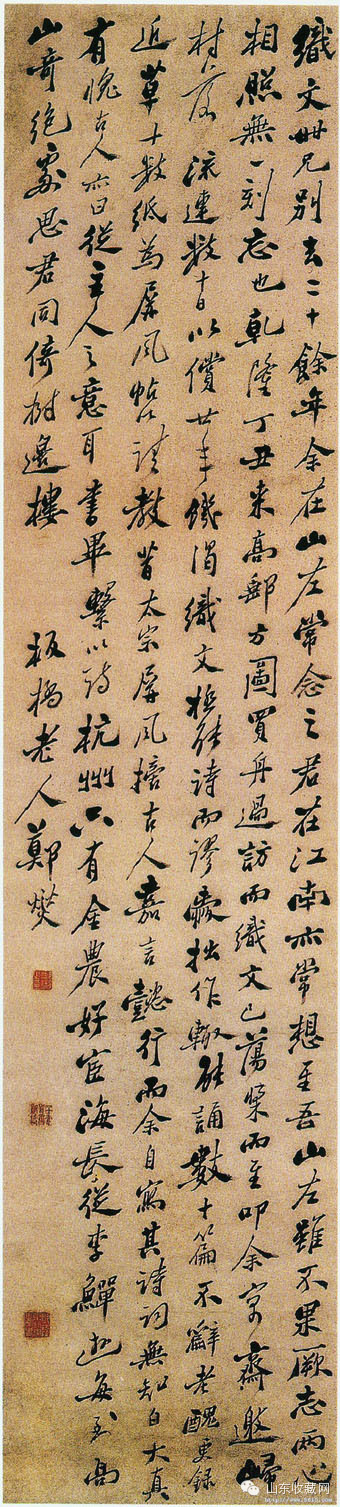 織文世兄別去二十餘年余在山左常念之君在江南亦常想至吾山左雖不果厥志兩心
相照無一刻忘也乾隆丁丑來高郵方圖買舟過訪而織文已蕩槳而至叩余寓齋邀歸
村落流連數十日以償廿年饑渴織文極能詩而謬愛拙作輒能誦數十篇不辭老醜更錄
近草十數紙為屏風帖請教昔太宗屏風摘古人嘉言懿行而余自寫其詩詞無知自大真
有愧古人亦曰從主人之意耳書畢繫以詩杭州只有金農好宦海長從李鱓遊每到高
山奇絕處思君同倚樹邊樓
板橋老人鄭燮
山东收藏网